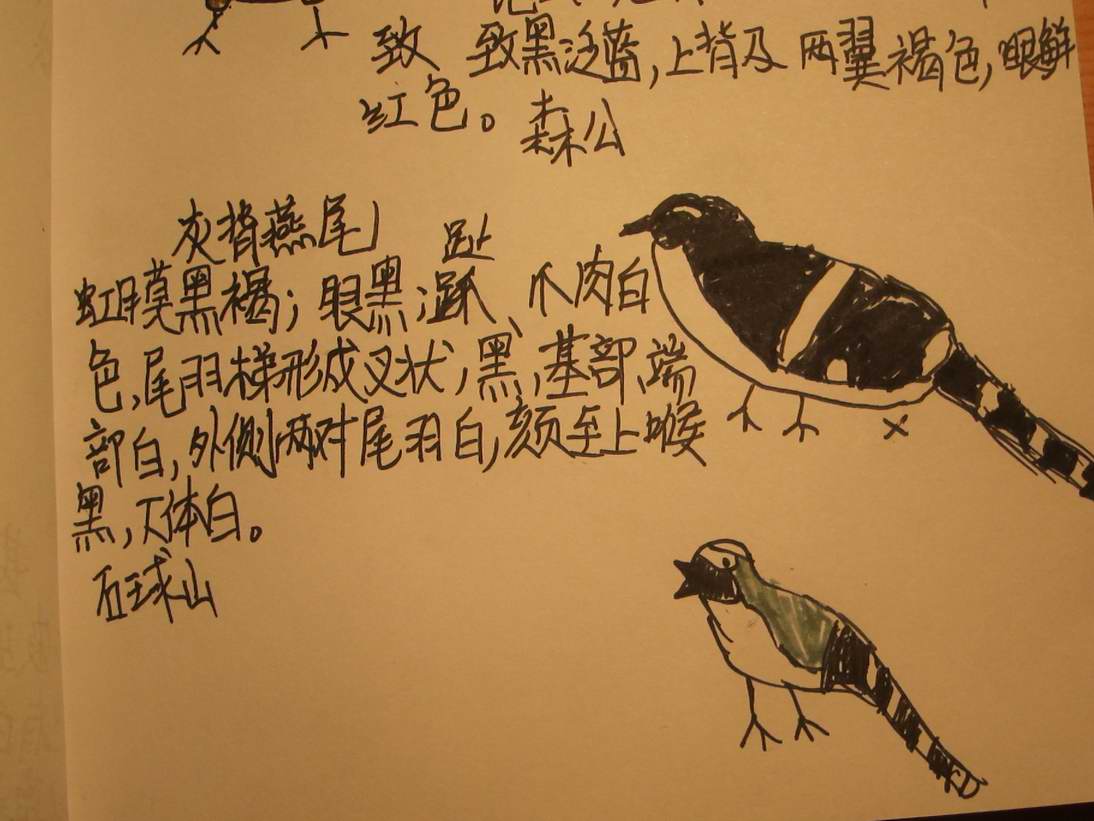 致 致黑泛蓝,上背及两翼褐色,眼鲜
红色。森公
灰背燕尾
趾
虹膜黑褐;眼黑;、爪肉白
色,尾羽梯形成叉状;黑,基部、端
部白,外侧两对尾羽白,颏至上喉
黑,下体白。
石球山